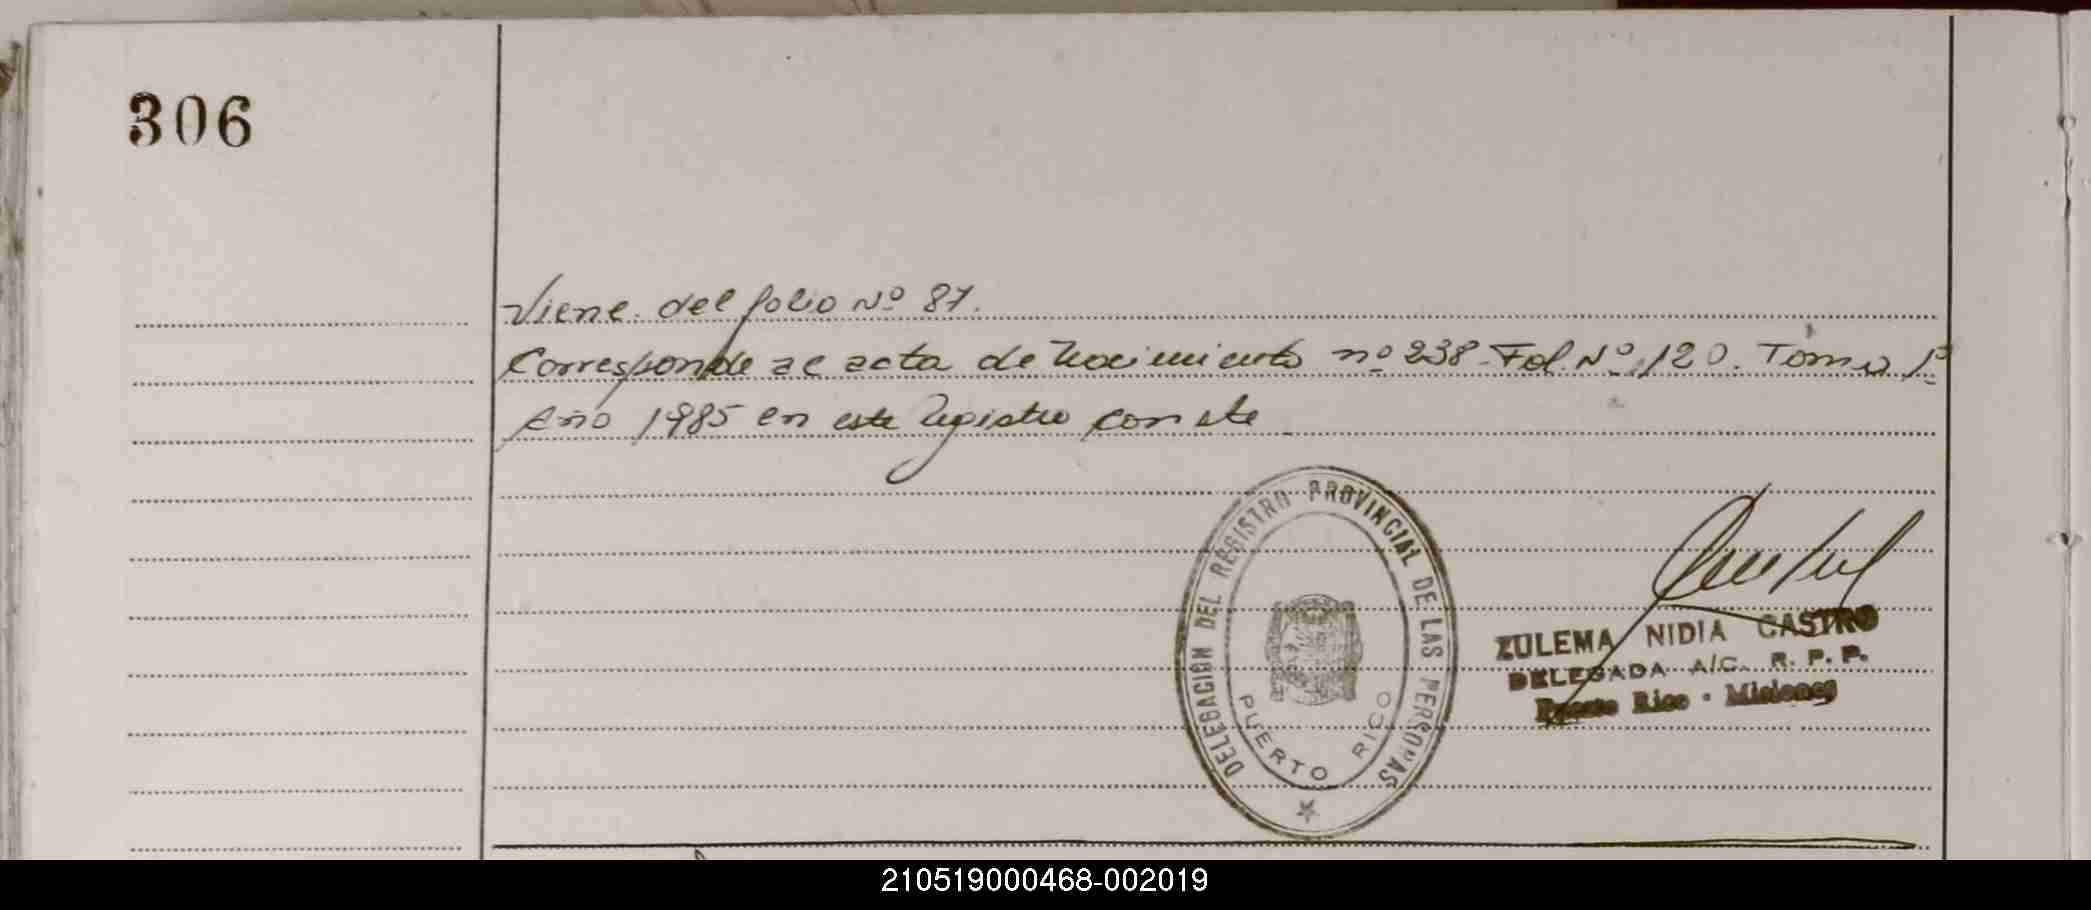 306
Viene del folio Nº 87.
Corresponde al acta de Nacimiento nº 238 - Fol. Nº 120. Tomo 1º
Año 1985 en este Registro conste
DELEGACION DEL REGISTRO PROVINCIAL DE LAS PERSONAS
PUERTO RICO
ZULEMA NIDIA CASTRO
DELEGADA A/C. R. P. P.
Puerto Rico - Misiones
210519000468-002019